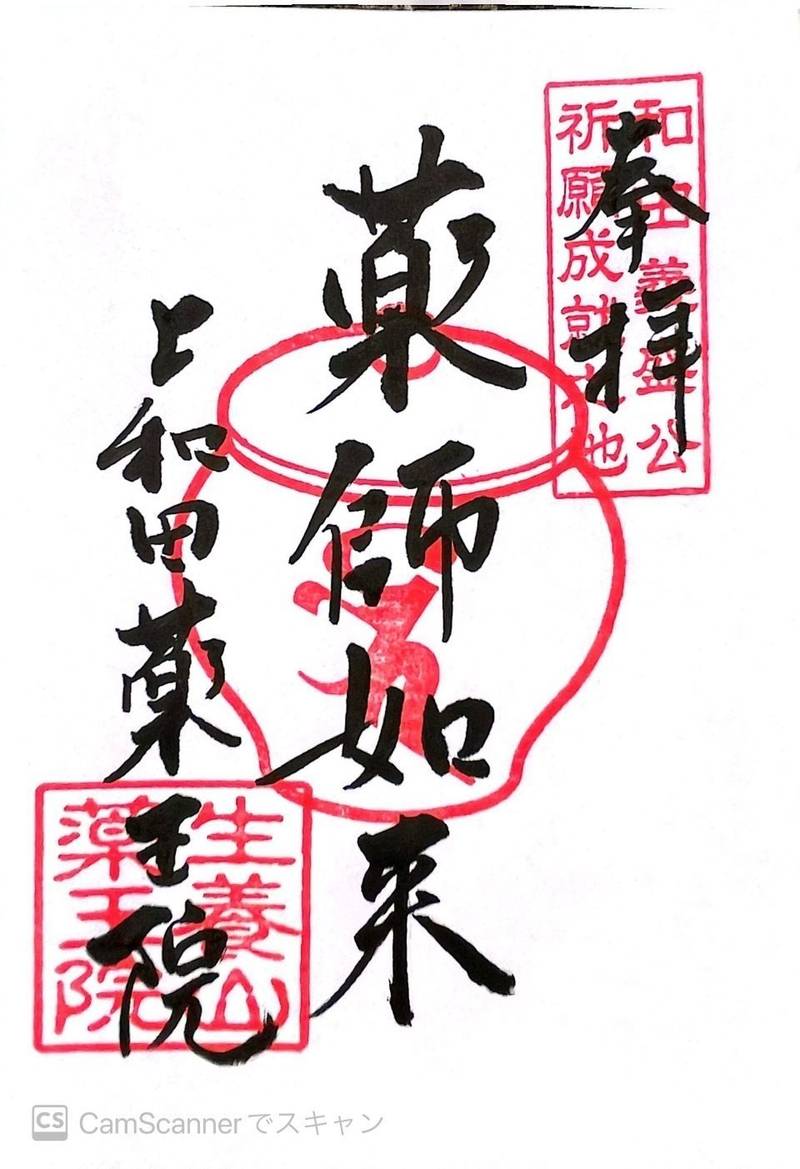 奉拝
和田義盛公
祈願成就之地
薬師如来
上和田薬王院
生養山
薬王院
CS CamScannerでスキャン